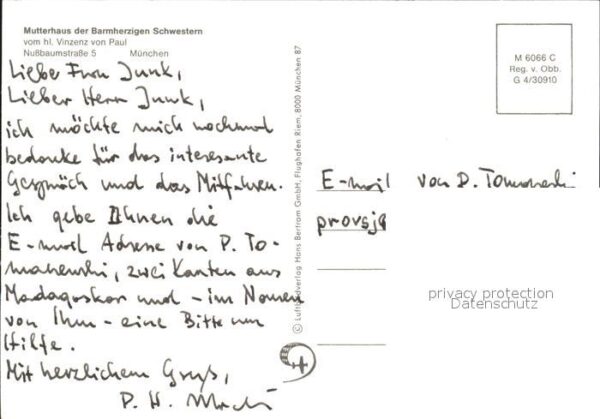 Mutterhaus der Barmherzigen Schwestern
vom hl. Vinzenz von Paul
Nußbaumstraße 5 München
Liebe Frau Junk,
Lieber Herr Junk,
ich möchte mich nochmal
bedanke für das interesante
Gespräch und das Mitfahren.
Ich gebe Ihnen die
E-mail Adrese von P. To-
manenski, zwei Karten aus
Madagaskar und - im Namen
von Ihm - eine Bitte um
Hilfe.
Mit herzlichem Gruß,
P. H.
© Luftbildverlag Hans Bertram GmbH, Flughafen Riem, 8000 München 87
M 6066 C
Reg. v. Obb.
G 4/30910
E-mail von P.
provsja
privacy protection
Datenschutz